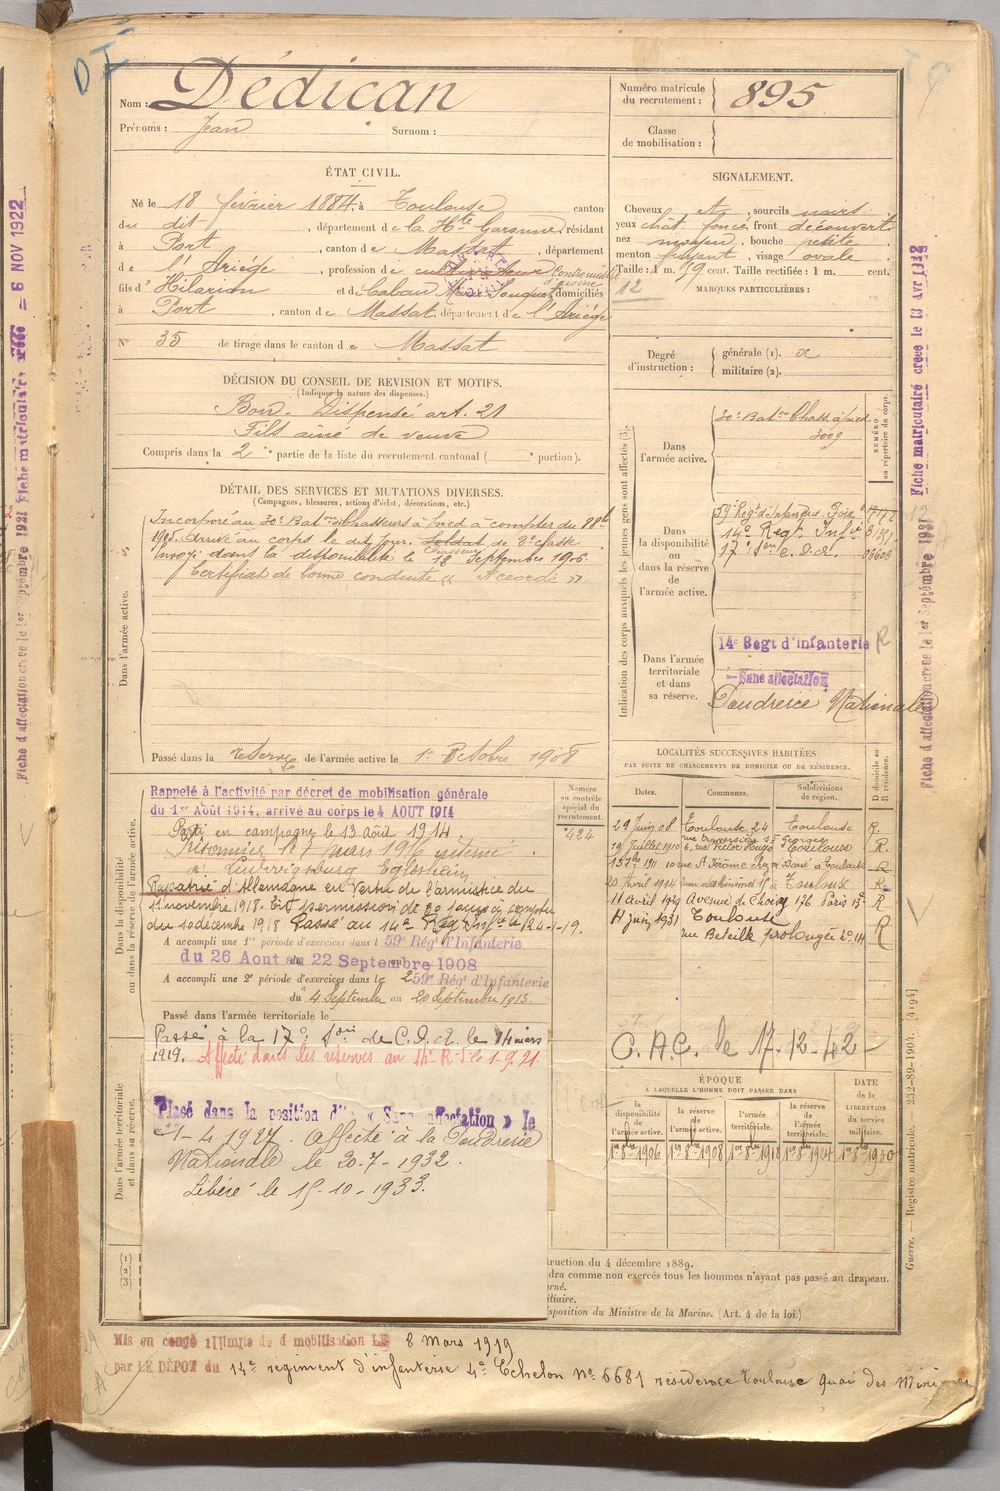 Nom : Dédican
Prénoms : Jean Surnom :
Numéro matricule du recrutement : 895
Classe de mobilisation :
ÉTAT CIVIL.
Né le 18 février 1884, à Toulouse, canton
du dit, département de la Hte Garonne, résidant
à Port, canton de Massat, département
de l'Ariége, profession de cultivateur Contremaître d'usine
fils d' Hilarion et de Caban domiciliés
à Port, canton de Massat, département de l'Ariége
N° 35 de tirage dans le canton de Massat
SIGNALEMENT.
Cheveux et, sourcils noirs
yeux chât. foncé, front découvert
nez moyen, bouche petite
menton fuyant, visage ovale
Taille : 1 m. 59 cent. Taille rectifiée : 1 m. cent.
12
MARQUES PARTICULIÈRES :
Degré d'instruction : générale (1).
militaire (2).
DÉCISION DU CONSEIL DE REVISION ET MOTIFS.
(Indiquer la nature des dispenses.)
Bon. Dispensé art. 21
Fils ainé de veuve
Compris dans la 2e partie de la liste du recrutement cantonal ( portion).
DÉTAIL DES SERVICES ET MUTATIONS DIVERSES.
(Campagnes, blessures, actions d'éclat, décorations, etc.)
Dans l'armée active.
Incorporé au 30e Baton Chasseurs à pied à compter du 8 8bre
1905. Arrivé au corps le dit jour. Soldat de 2e classe
Chasseur
envoyé dans la disponibilité le 18 Septembre 1906.
Certificat de bonne conduite " Accordé ".
Passé dans la réserve de l'armée active le 1er Octobre 1908
Indication des corps auxquels les jeunes gens sont affectés (3).
NUMÉRO au répertoire du corps.
Dans l'armée active.
30e Baton Chass à pied
3009
Dans la disponibilité ou dans la réserve de l'armée active.
59 Regt d'Infanterie
14e Regt Infie
17e Son C.O.A. 06606
Dans l'armée territoriale et dans sa réserve.
14e Regt d'Infanterie R
Sans affectation
Poudrerie Nationale
Dans la disponibilité ou dans la réserve de l'armée active.
Rappelé à l'activité par décret de mobilisation générale
du 1er Août 1914, arrivé au corps le 4 AOUT 1914
Parti en campagne le 13 Août 1914.
Prisonnier le 7 mars 1916 interné
à Ludwigsburg Eglosheim
Rapatrié d'Allemagne en vertu de l'armistice du
11 novembre 1918. En permission de 30 jours à compter
du 20 décembre 1918 Passé au 14e Régt Infie le 24-1-19.
A accompli une 1re période d'exercices dans l 59e Rég' d'Infanterie
du 26 Aout au 22 Septembre 1908
A accompli une 2e période d'exercices dans le 59e Rég' d'Infanterie
du 4 Septembre au 20 Septembre 1913.
Passé dans l'armée territoriale le
Passé à la 17e Son de C.O.A. le 14 mars
1919. Affecté dans les réserves au 14e R.I. le 1.9.21
Numéro au contrôle spécial du recrutement.
424
Dans l'armée territoriale et dans sa réserve.
Placé dans la position d'« Sans affectation » le
1-4-1927. Affecté à la Poudrerie
Nationale le 20-7-1932.
Libéré le 15-10-1933.
LOCALITÉS SUCCESSIVES HABITÉES
PAR SUITE DE CHANGEMENTS DE DOMICILE OU DE RÉSIDENCE.
Dates. Communes. Subdivisions de région. D domicile ou R résidence.
29 Juin 08 Toulouse 24 Toulouse R.
rue Traversière St Georges
19 Juillet 1910 6, rue Victor Hugo Toulouse R
15 1910 10 rue St Jérôme Toulouse R
20 Avril 1914 Quai des Minimes 15 à Toulouse R
11 Avril 1929 Avenue de Choisy 176 Paris 13e R
11 juin 1931 Toulouse R
rue Béteille prolongée No 14
C.A.C. le 17-12-42
ÉPOQUE
À LAQUELLE L'HOMME DOIT PASSER DANS
la disponibilité de l'armée active. la réserve de l'armée active. l'armée territoriale. la réserve de l'armée territoriale. DATE de la LIBÉRATION du service militaire.
1er 8bre 1906 1er 8bre 1908 1er 8bre 1918 1er 8bre 1924 1er 8bre 1930
(1)
(2)
(3)
truction du 4 décembre 1889.
dra comme non exercés tous les hommes n'ayant pas passé au drapeau.
rné.
iliaire.
sposition du Ministre de la Marine. (Art. 4 de la loi.)
Mis en congé illimité de démobilisation LE 8 Mars 1919
par LE DÉPOT du 14e régiment d'infanterie 4e Echelon No 6681 résidence Toulouse Quai des Minimes
Guerre. — Registre matricule. 232-89-1904. [4194]
Fiche matriculaire créée le 13 Avr 1922
Fiche d'affectation créée le 1er Septembre 1921
Fiche d'affectation créée le 1er Septembre 1921 Fiche matriculaire créée = 6 NOV 1922